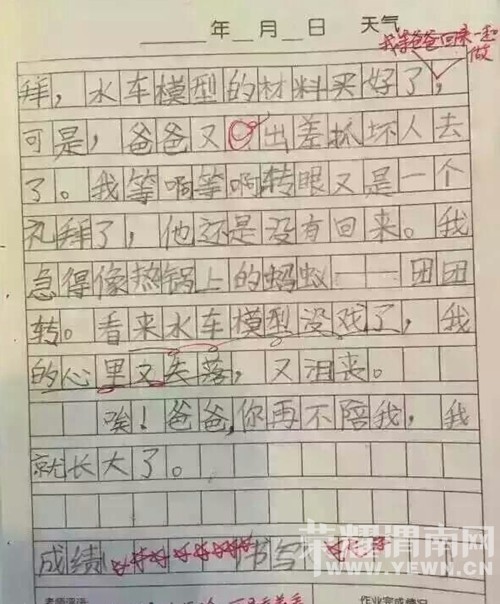 年 月 日 天气
我等爸爸回来一起做
拜，水车模型的材料买好了，
可是，爸爸又出差抓坏人去
了。我等啊等啊转眼又是一个
礼拜了，他还是没有回来。我
急得像热锅上的蚂蚁——团团
转。看来水车模型没戏了，我
的心里又失落，又沮丧。
唉！爸爸，你再不陪我，我
就长大了。
成绩 书写
荣耀渭南网
www.WEINAN.REN
老师评语 作业完成情况